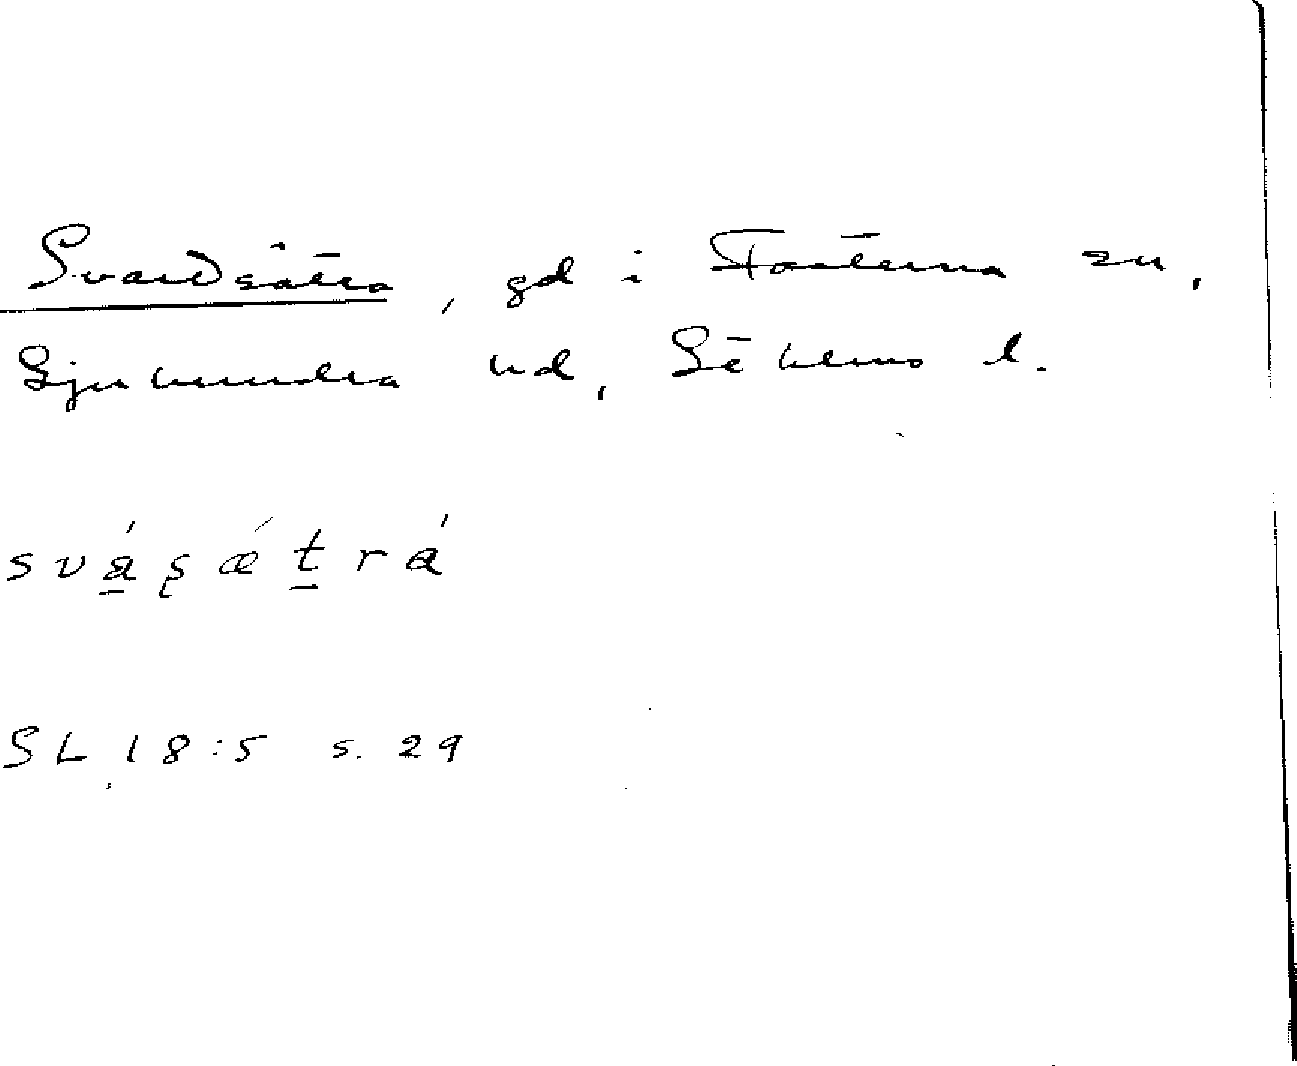 Svardsätra, gd i Fasterna sn,
Sjuhundra hd, Sthlms l.
svásǽtrá
SL 18:5 s. 29